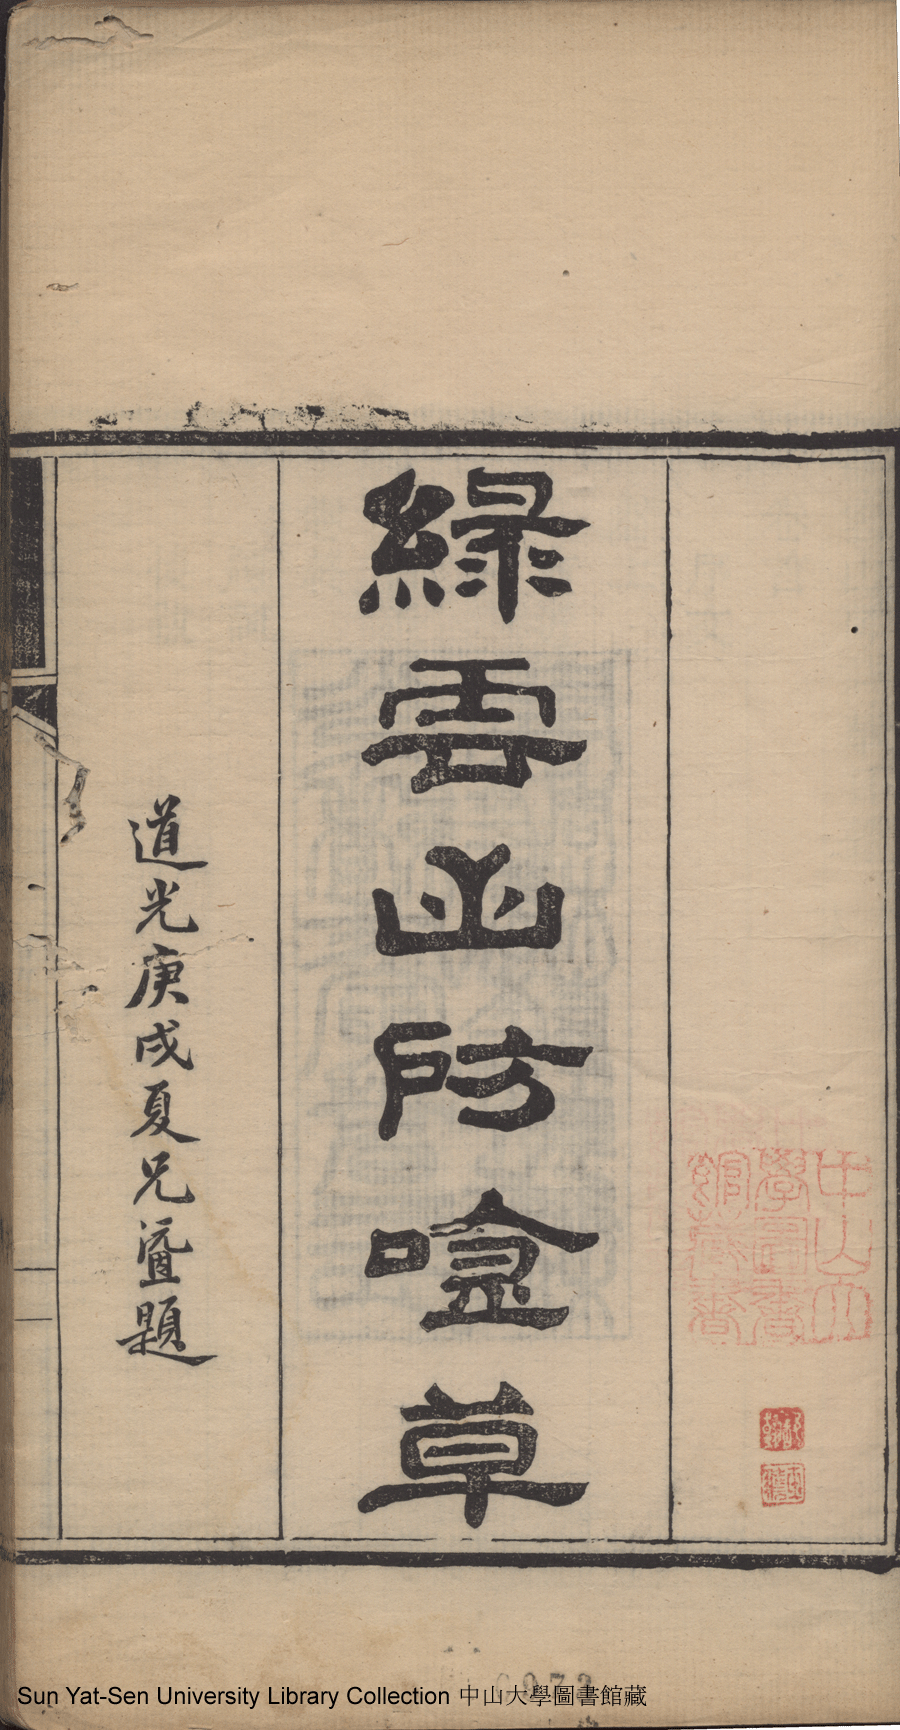 綠雲山房唫草
道光庚戌夏兄題
中山大
學圖書
館藏書
Sun Yat-Sen University Library Collection 中山大學圖書館藏